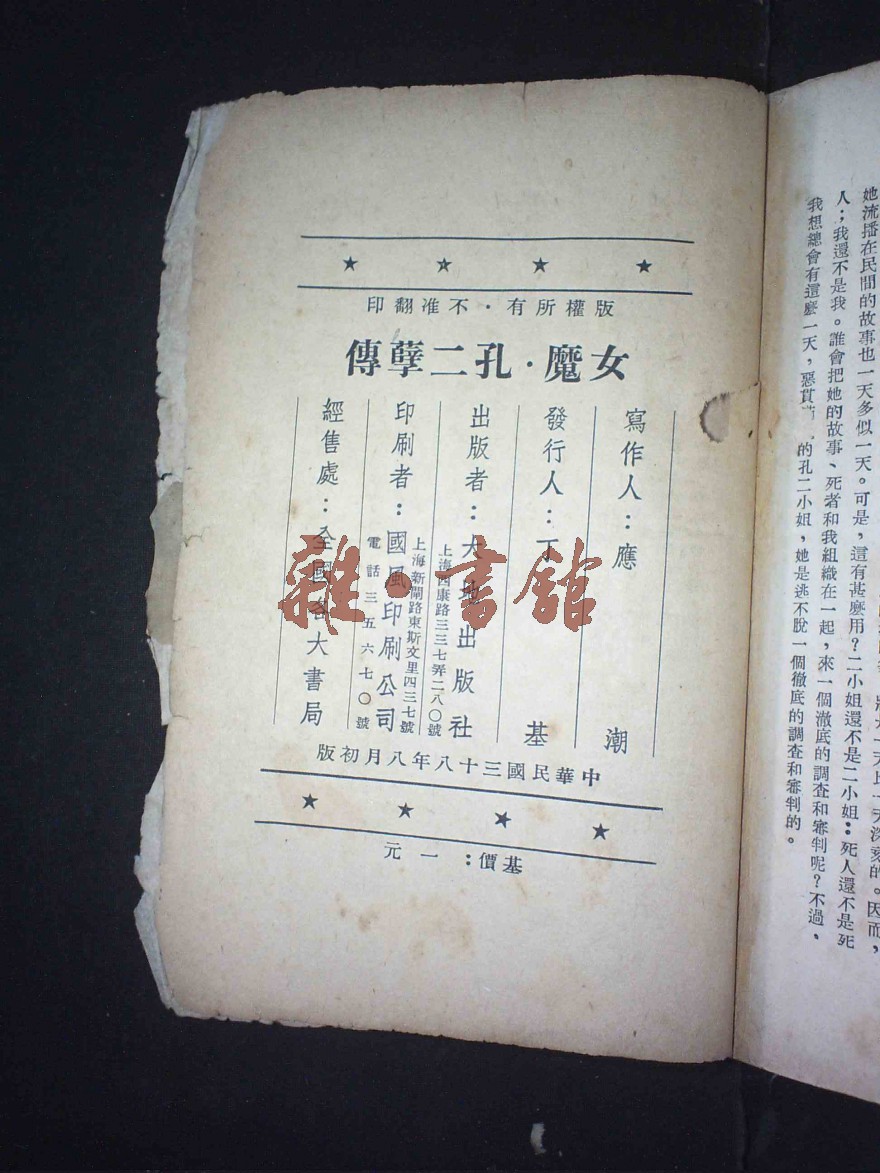 她流播在民間的故事也一天多似一天。可是，這有甚麼用？二小姐還不是二小姐：死人還不是死
人；我還不是我。誰會把她的故事、死者和我組織在一起，來一個澈底的調查和審判呢？不過，
我想總會有這麼一天，惡貫 的孔二小姐，她是逃不脫一個徹底的調查和審判的。
版權所有·不准翻印
女魔·孔二孽傳
寫作人：應 潮
發行人：丁 基
出版者：大地出版社
上海西康路三三七弄二八〇號
印刷者：國風印刷公司
上海新閘路東斯文里四三七號
電話三五六七〇號
經售處：全國各大書局
中華民國三十八年八月初版
基價：一元
雜·書館